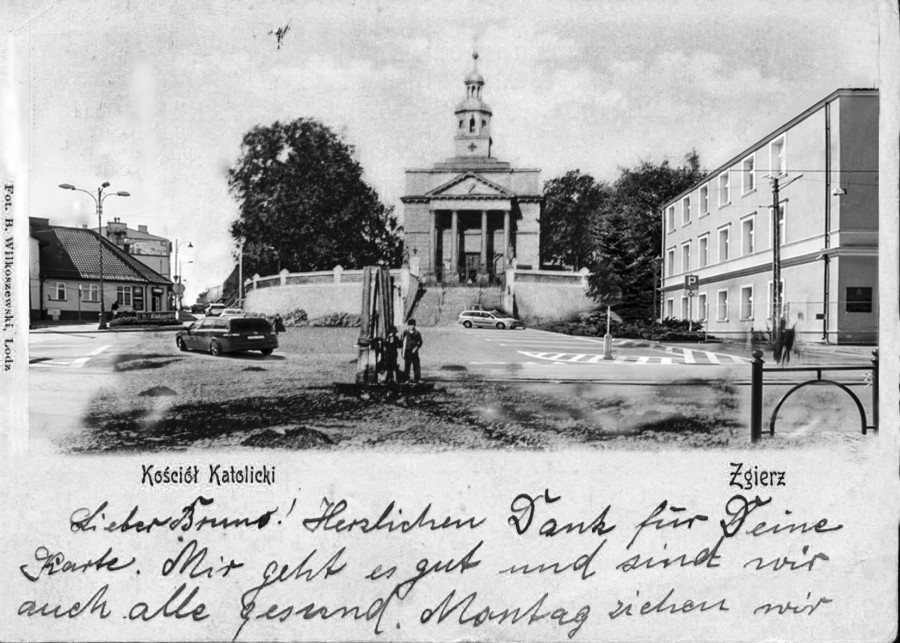 Fot. B. Wilkoszewski, Łódź
Kościół Katolicki
Zgierz
Lieber Bruno! Herzlichen Dank für Deine
Karte. Mir geht es gut und sind wir
auch alle gesund. Montag ziehen wir